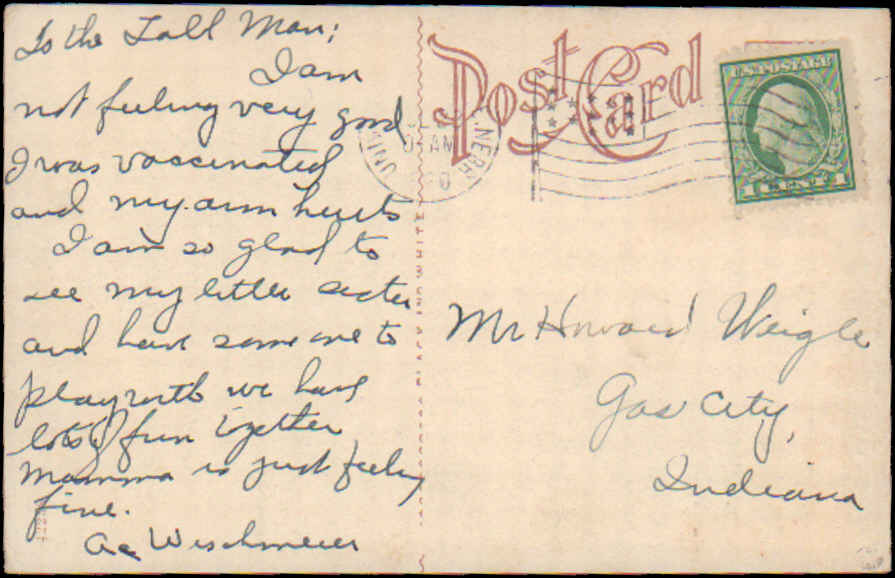 To the Tall Man;
I am
not feeling very good
I was vaccinated
and my arm hurts
I am so glad to
see my little sister
and have some one to
play with we have
lots of fun together
Mamma is just feeling
fine.
Wischmeier
Post Card
AM
NEBR
U.S. POSTAGE
1 CENT 1
Mr Howard Weigle
Gas City,
Indiana